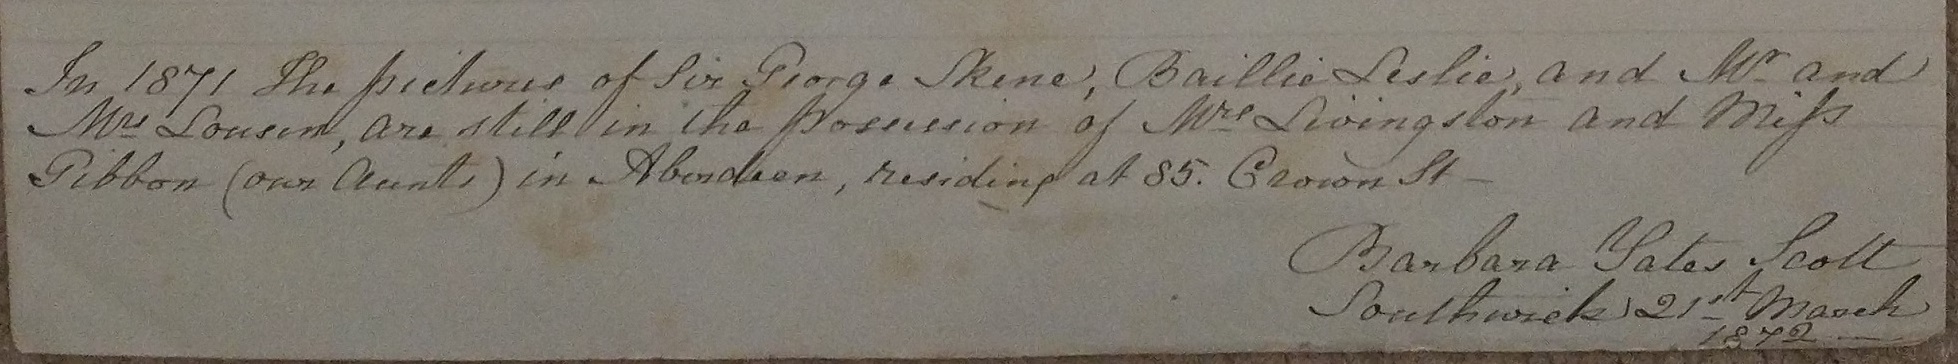 In 1871 The pictures of Sir George Skene, Baillie Leslie, and Mr and
Mrs Lousen, are still in the possession of Mrs Livingston and Miss
Gibbon (our Aunts) in Aberdeen, residing at 85. Crown St —
Barbara Yates Scott
Southwick 21st March
1872 —